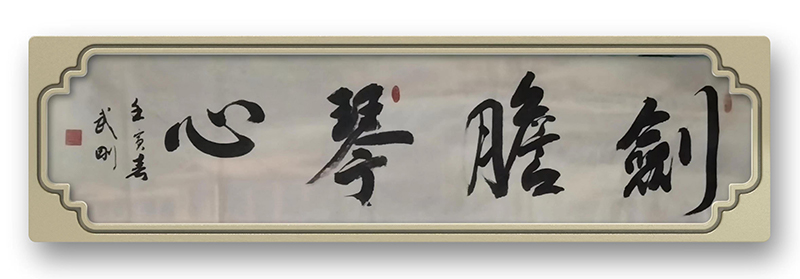 劍膽琴心
壬寅春
武剛